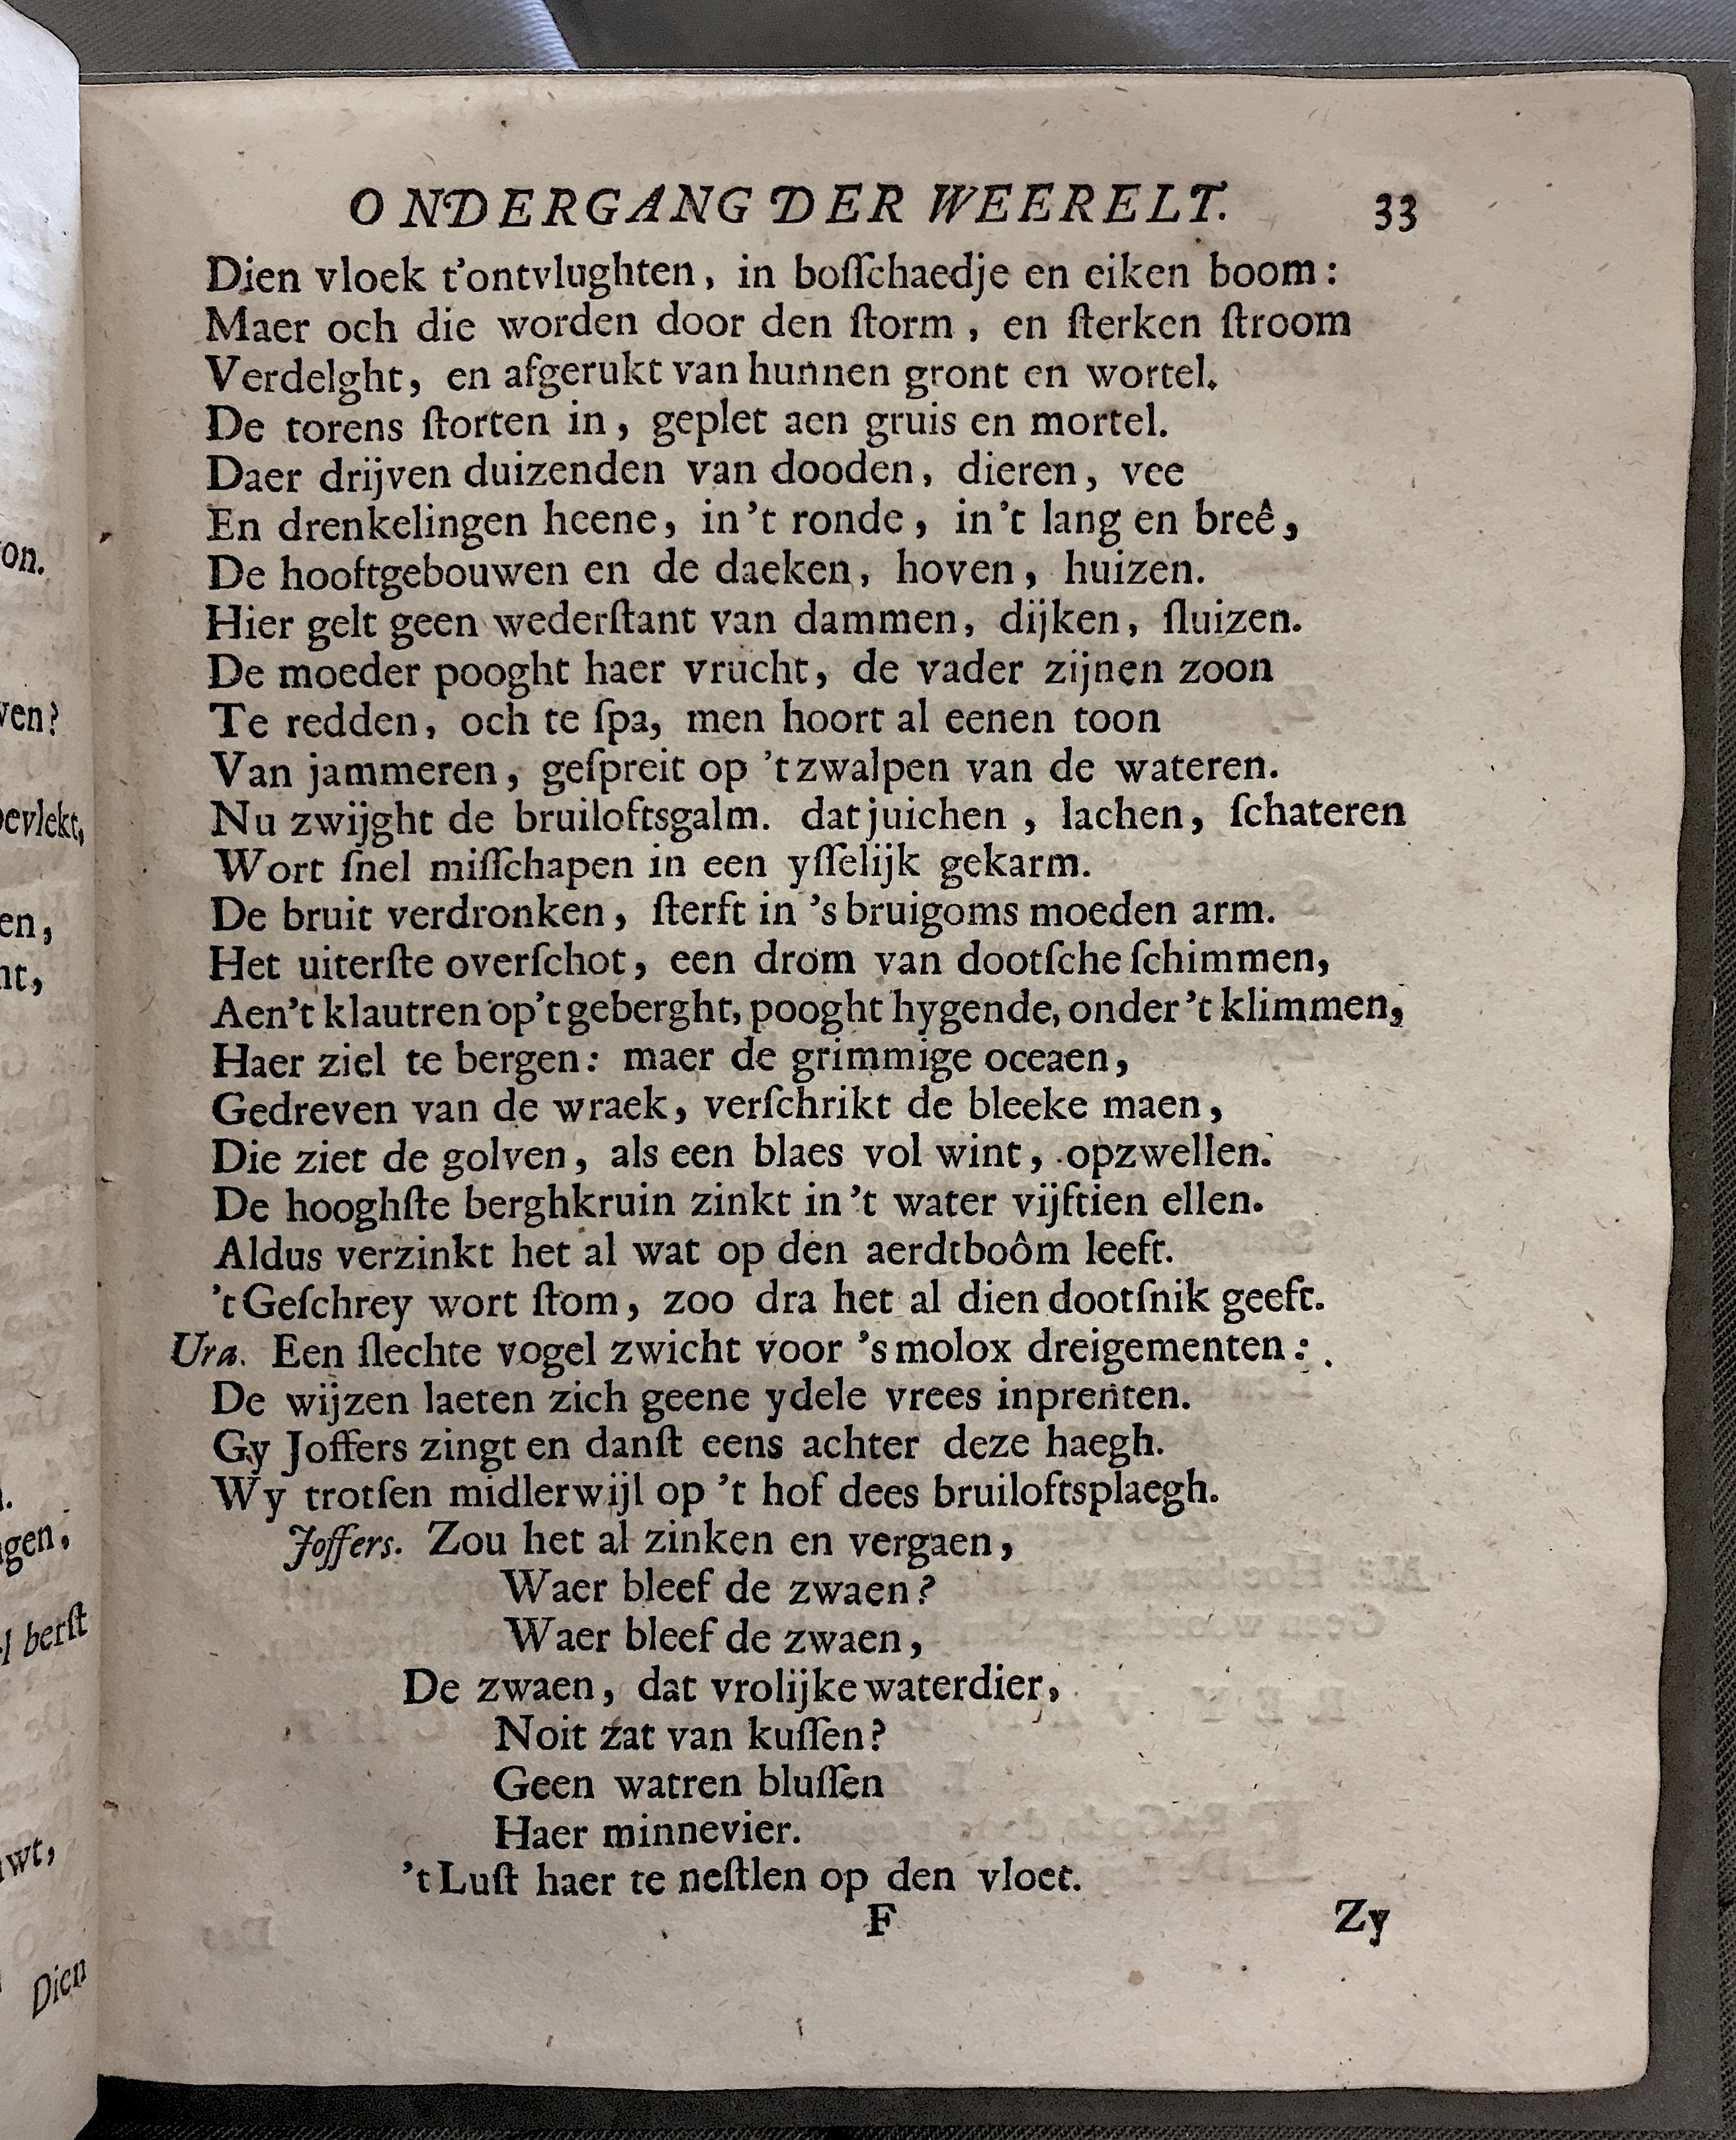 ONDERGANG DER WEERELT. 33
Dien vloek t'ontvlughten, in boſſchaedje en eiken boom:
Maer och die worden door den ſtorm, en ſterken ſtroom
Verdelght, en afgerukt van hunnen gront en wortel.
De torens ſtorten in, geplet aen gruis en mortel.
Daer drijven duizenden van dooden, dieren, vee
En drenkelingen heene, in't ronde, in't lang en breê,
De hooftgebouwen en de daeken, hoven, huizen.
Hier gelt geen wederſtant van dammen, dijken, ſluizen.
De moeder pooght haer vrucht, de vader zijnen zoon
Te redden, och te ſpa, men hoort al eenen toon
Van jammeren, geſpreit op 't zwalpen van de wateren.
Nu zwijght de bruiloftsgalm. dat juichen, lachen, ſchateren
Wort ſnel miſſchapen in een yſſelijk gekarm.
De bruit verdronken, ſterft in 's bruigoms moeden arm.
Het uiterſte overſchot, een drom van dootſche ſchimmen,
Aen't klautren op't geberght, pooght hygende, onder 't klimmen,
Haer ziel te bergen: maer de grimmige oceaen,
Gedreven van de wraek, verſchrikt de bleeke maen,
Die ziet de golven, als een blaes vol wint, opzwellen.
De hooghſte berghkruin zinkt in 't water vijftien ellen.
Aldus verzinkt het al wat op den aerdtboôm leeft.
't Geſchrey wort ſtom, zoo dra het al dien dootſnik geeft.
Ura. Een ſlechte vogel zwicht voor 's molox dreigementen:
De wijzen laeten zich geene ydele vrees inprenten.
Gy Joffers zingt en danſt eens achter deze haegh.
Wy trotſen midlerwijl op 't hof dees bruiloftsplaegh.
Joffers. Zou het al zinken en vergaen,
Waer bleef de zwaen?
Waer bleef de zwaen,
De zwaen, dat vrolijke waterdier,
Noit zat van kuſſen?
Geen watren bluſſen
Haer minnevier.
't Luſt haer te neſtlen op den vloet.
F Zy
on.
ven?
bevlekt,
en,
ht,
gen,
l berſt
wt,
Dien